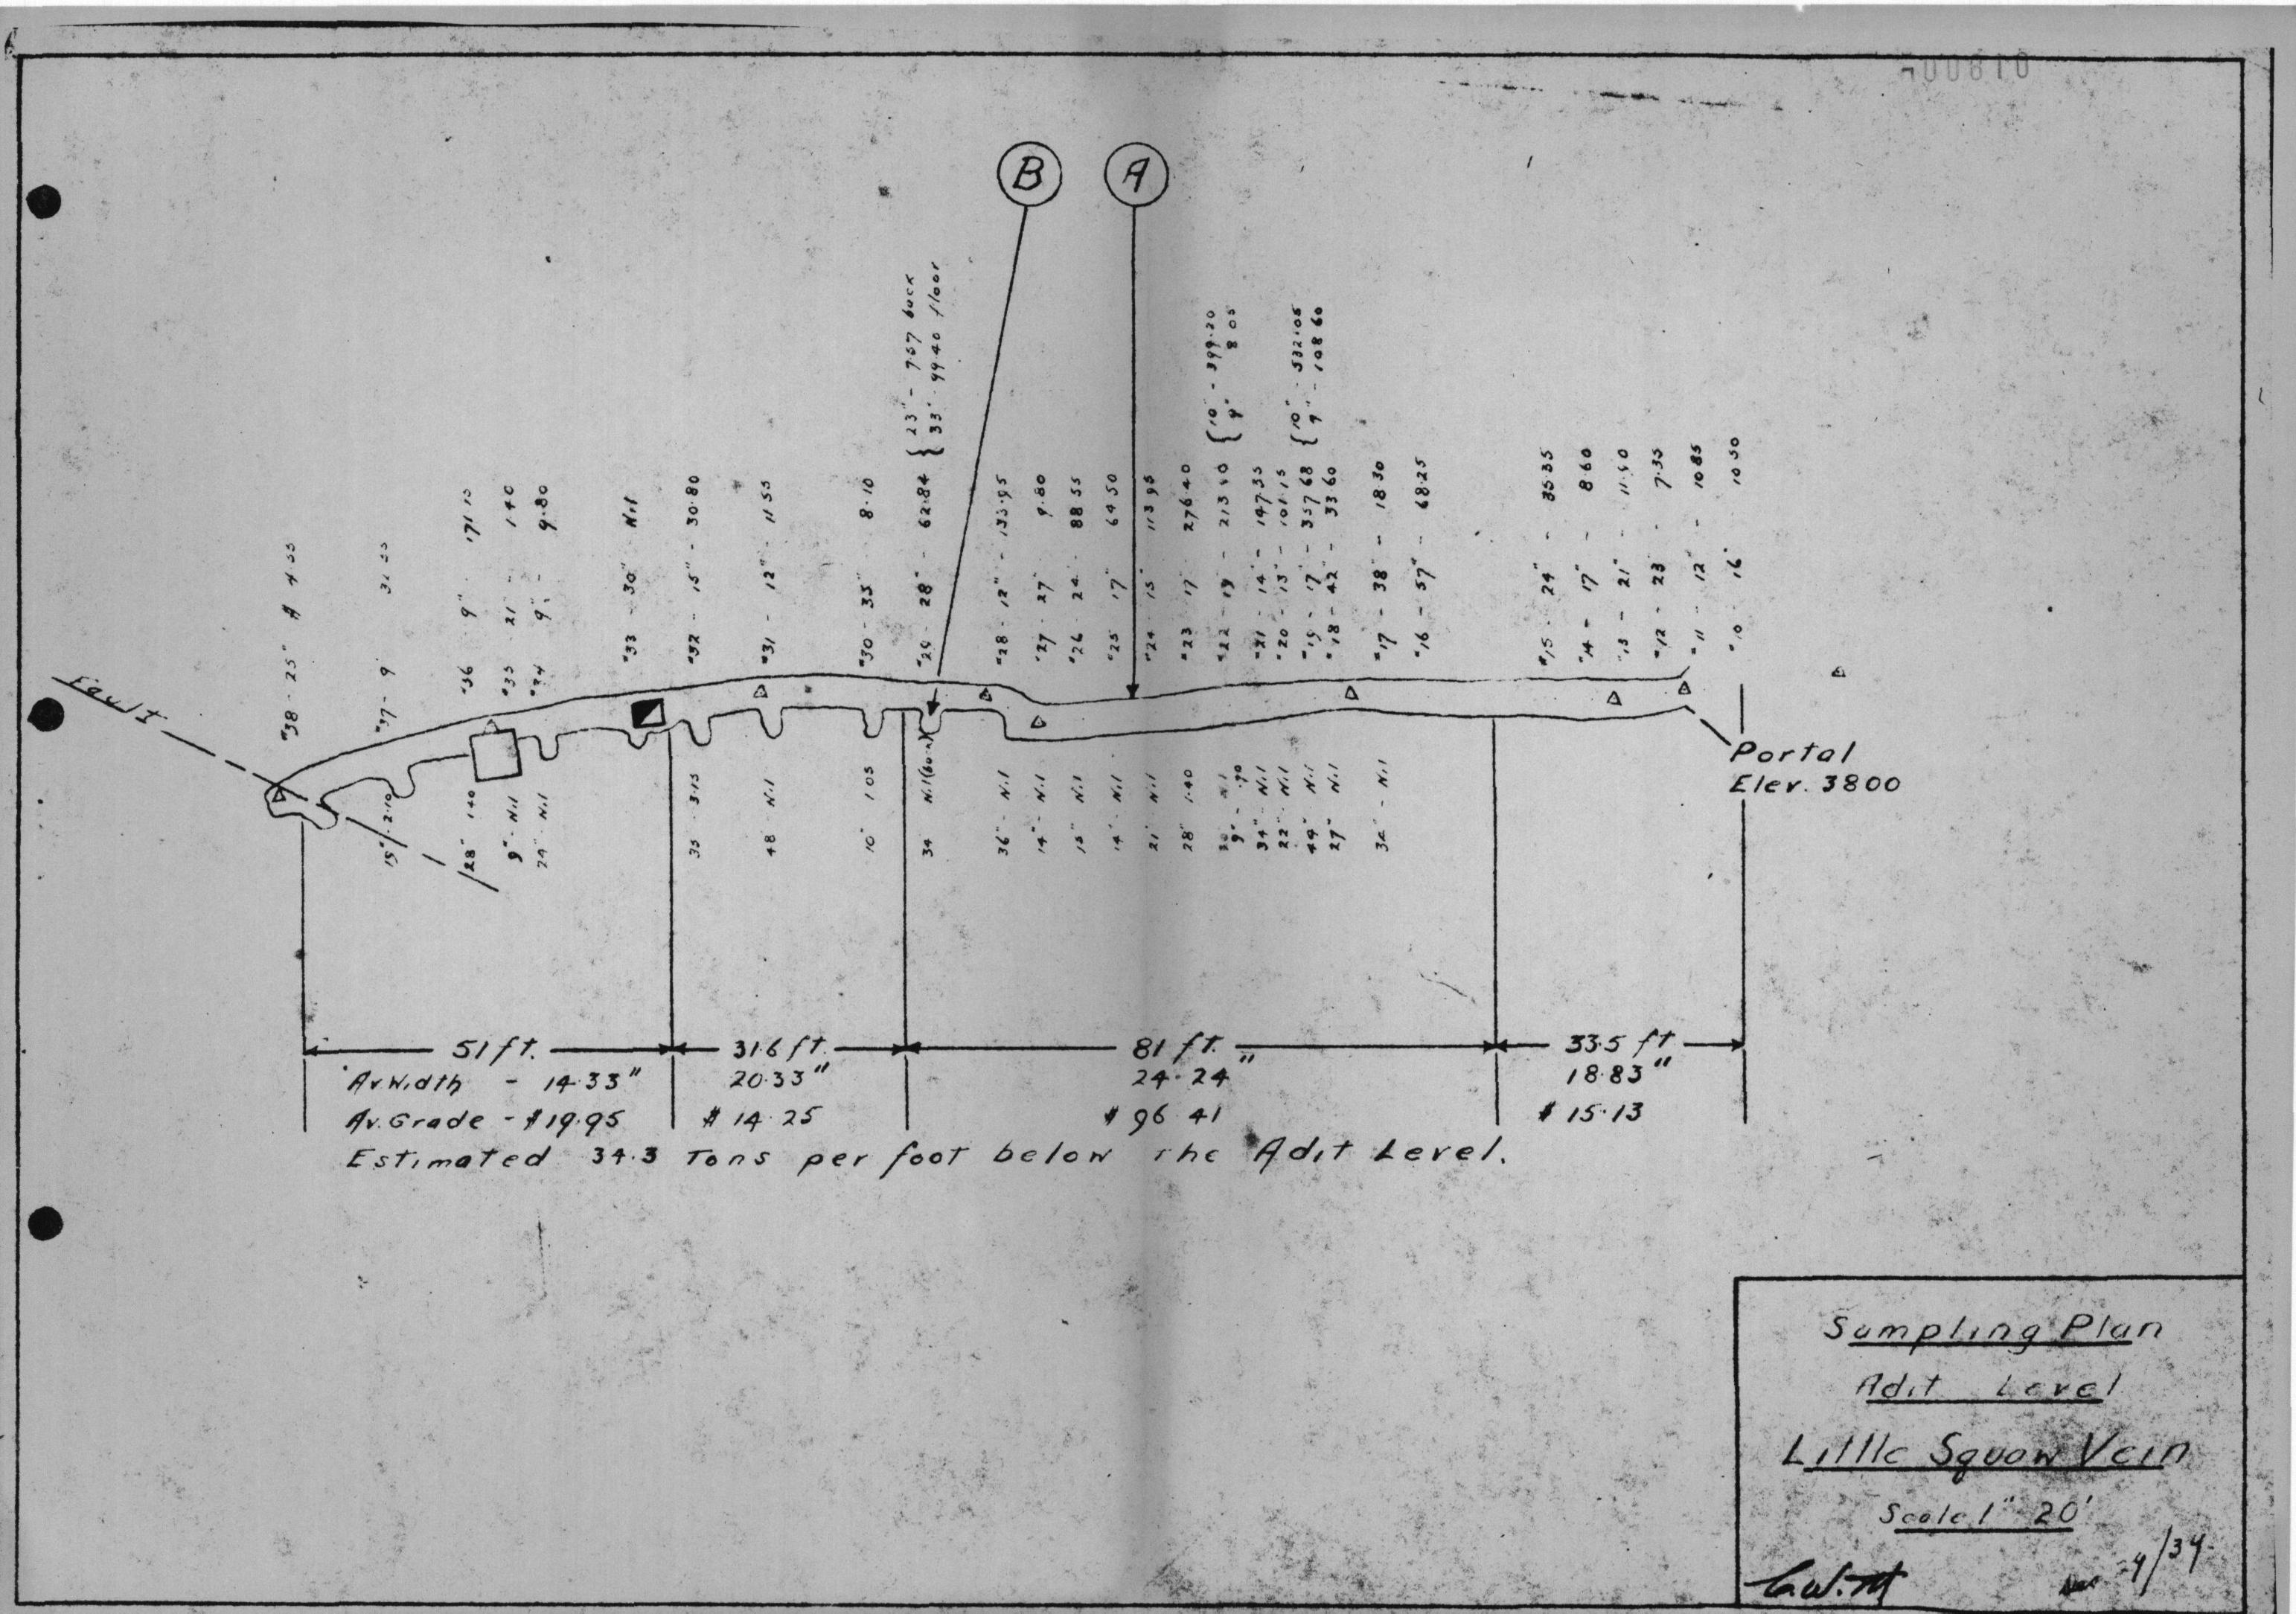 B
A
{ 23" - 7.57 back
33" - 99.40 floor
{ 10" - 399.20
9" 8.05
{ 10" - 532.05
9" - 108.60
#38 - 25" $ 4.55
#37 - 9
#36 9" 171.15
#35 21" 1.40
#34 9" - 9.80
#33 - 30" Nil
#32 - 15" - 30.80
#31 - 12" - 11.55
#30 - 35" 8.10
#29 - 28" - 62.84
#28 - 12" - 133.95
#27 - 27" 9.80
#26 - 24 - 88.55
#25 17" 64.50
#24 - 15" 113.95
#23 17" 276.40
#22 - 19 - 213.40
#21 - 14" - 147.35
#20 - 13" - 101.15
#19 - 17" - 357.68
#18 - 42" - 33.60
#17 - 38" - 18.30
#16 - 57" - 68.25
#15 - 24" - 35.35
#14 - 17" - 8.60
#13 - 21" - 11.90
#12 - 23" - 7.35
#11 - 12" - 10.85
#10 - 16" 10.50
Fault
Portal
Elev. 3800
15" 2.10
28" 1.40
9" - Nil
24" Nil
35 - 3.15
48 - Nil
10" 1.05
34 Nil
36" - Nil
14" - Nil
15" Nil
14" - Nil
21" Nil
28" 1.40
9" - .70
34" - Nil
22" - Nil
44" Nil
27" Nil
32" - Nil
51 ft. 31.6 ft. 81 ft. 33.5 ft
Av Width - 14.33" 20.33" 24.24" 18.83"
Av. Grade - $19.95 $14.25 $96.41 $15.13
Estimated 34.3 Tons per foot below The Adit Level.
Sampling Plan
Adit Level
Little Squaw Vein
Scale 1" 20'